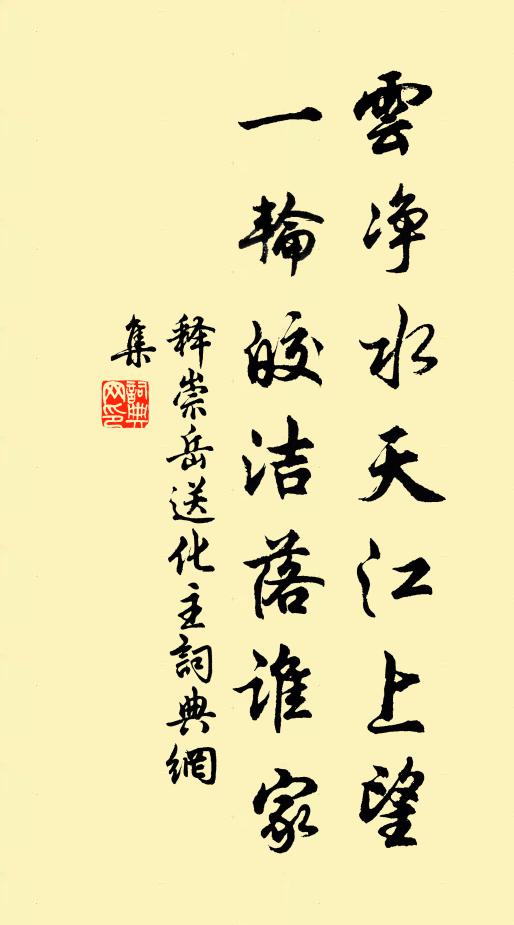 雲净水天江上望
一輪皎洁落誰家
释崇岳送化主詞典網
集
詞典网印